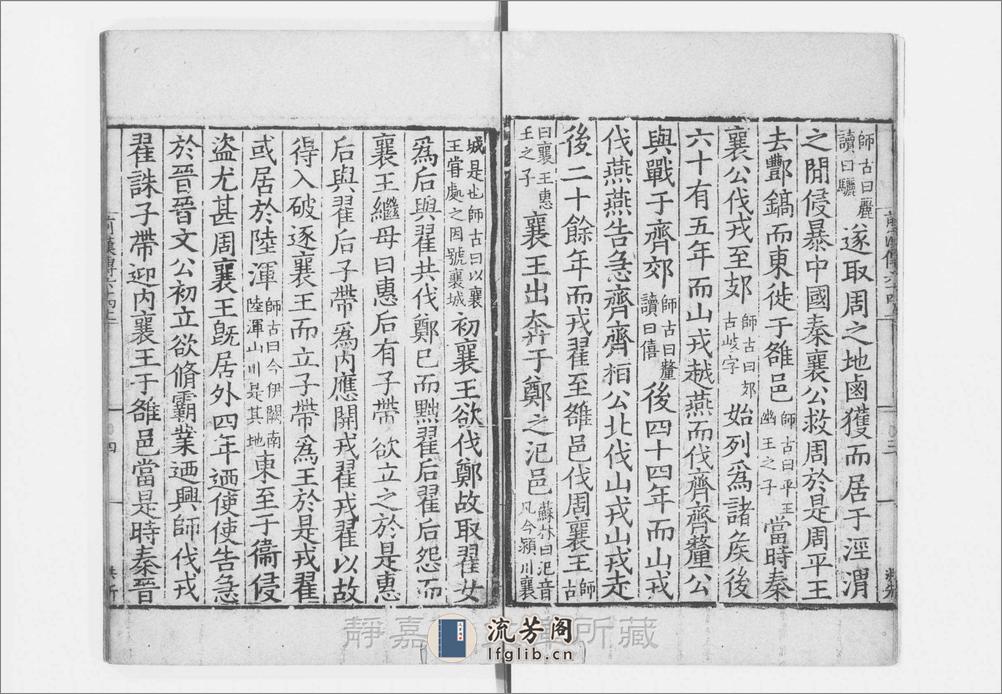 師古曰麗讀曰驪遂取周之地鹵獲而居于涇渭
之閒侵暴中國秦襄公救周於是周平王
去酆鎬而東徙于雒邑師古曰平王幽王之子當時秦
襄公伐戎至郊師古曰郊古岐字始列爲諸侯後
六十有五年而山戎越燕而伐齊齊釐公
與戰于齊郊師古曰釐讀曰僖後四十四年而山戎
伐燕燕告急齊齊桓公北伐山戎山戎走
後二十餘年而戎翟至雒邑伐周襄王師古
曰襄王惠王之子襄王出奔于鄭之氾邑蘇林曰氾音凡今潁川襄
城是也師古曰以襄王嘗處之因號襄城初襄王欲伐鄭故取翟女
爲后與翟共伐鄭已而黜翟后翟后怨而
襄王繼母曰惠后有子帶欲立之於是惠
后與翟后子帶爲內應開戎翟戎翟以故
得入破逐襄王而立子帶爲王於是戎翟
或居於陸渾師古曰今伊闕南陸渾山川是其地東至于衞侵
盗尤甚周襄王旣居外四年迺使使告急
於晉晉文公初立欲脩霸業迺興師伐戎
翟誅子帶迎內襄王于雒邑當是時秦晉
前漢傳六十四上
四
三
靜嘉 所藏
流芳阁
lfglib.cn